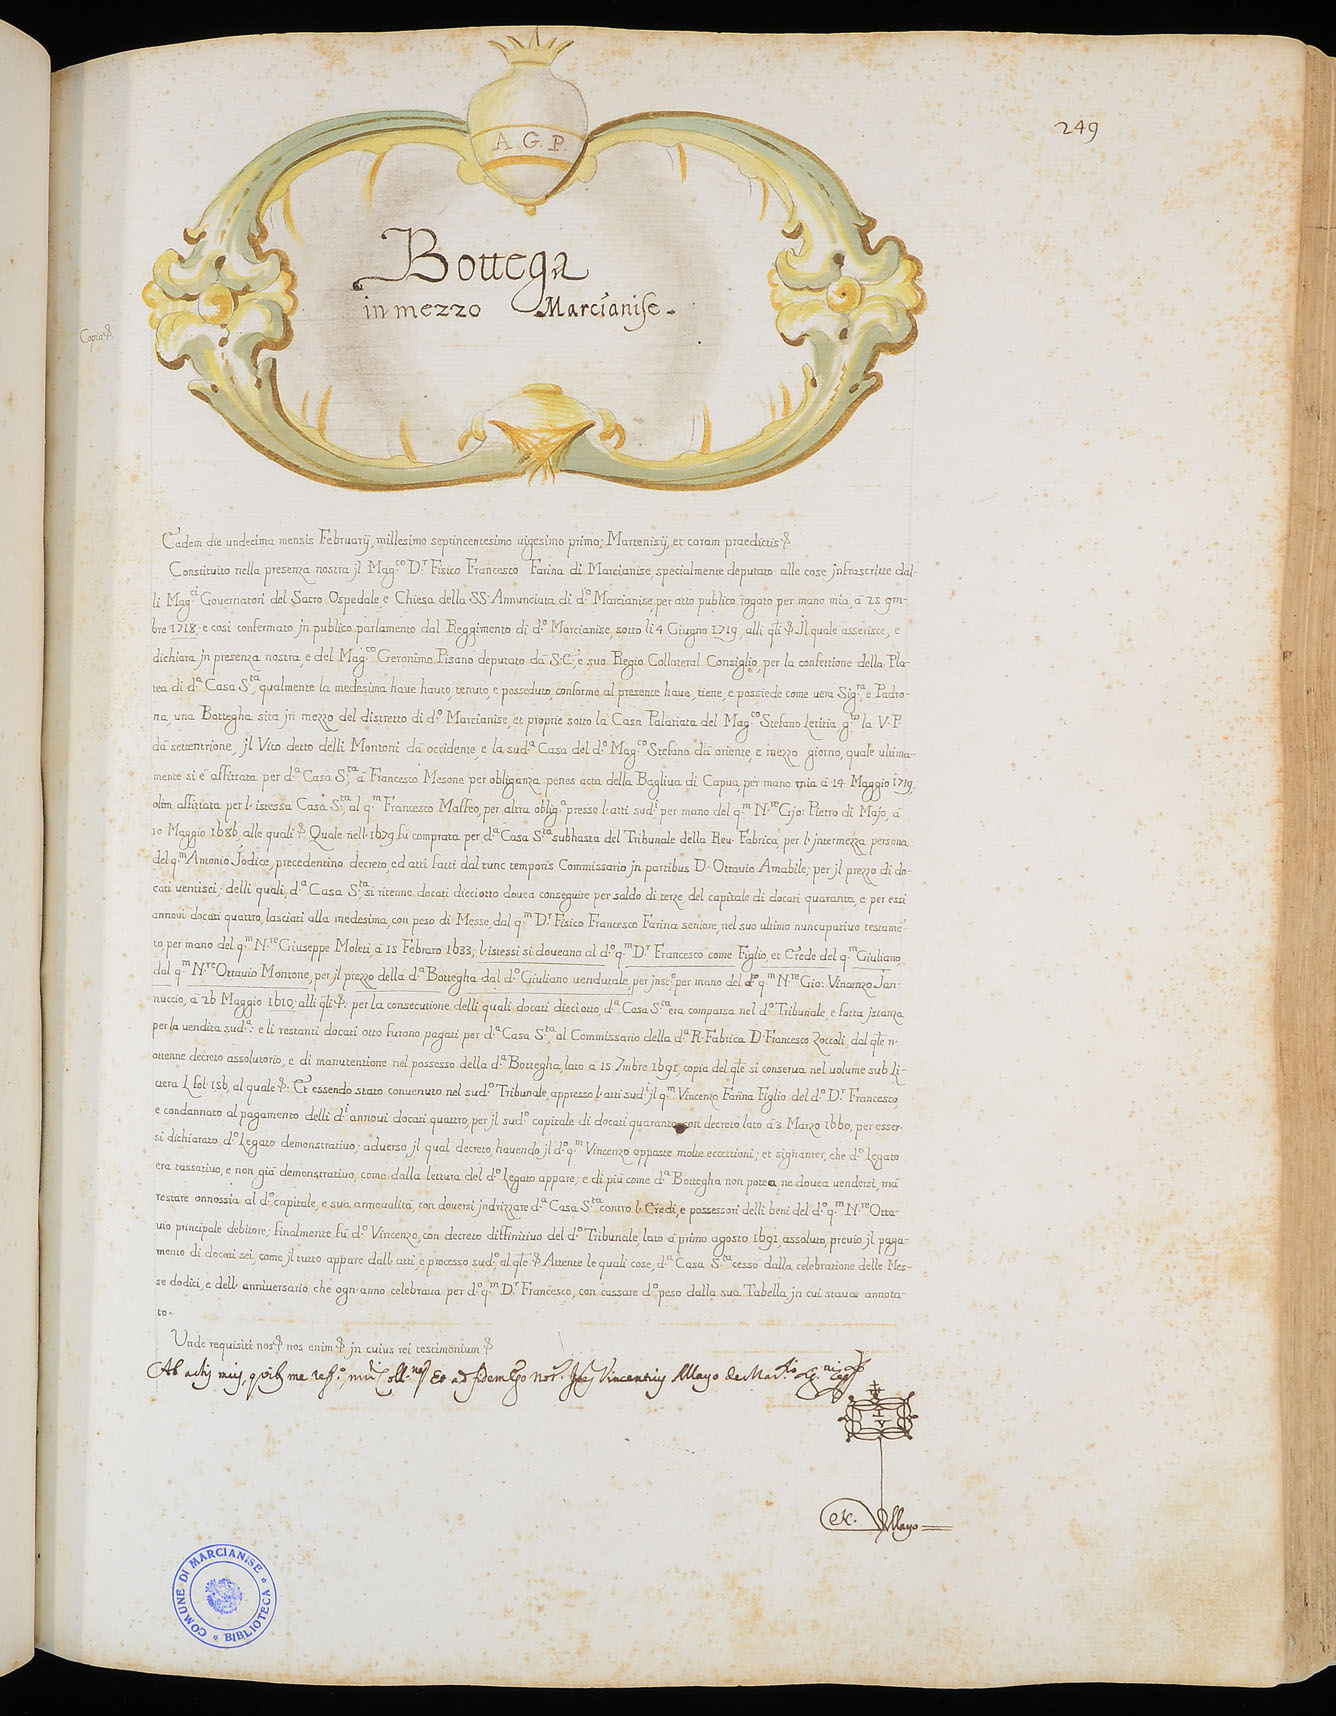 249
A. G. P.
Bottega
in mezzo Marcianise.
Copia &.
Eadem die undecima mensis Februarij, millesimo septincentesimo uigesimo primo; Martenisij, et coram praedictis &
Constituito nella presenza nostra jl Mag.co D.r Fisico Francesco Farina di Marcianise, specialmente deputato alle cose jnfrascritte dal-
li Mag.ci Gouernatori del Sacro Ospedale, e Chiesa della SS. Annunciata di d.o Marcianise, per atto publico rogato per mano mia, à 25 9m-
bre 1718, e così confermato jn publico parlamento dal Reggimento di d.o Marcianise, sotto li 4 Giugno 1719, alli q̄li & Jl quale asserisce, e
dichiara jn presenza nostra, e del Mag.co Geronimo Pisano deputato dà S.C., e suo Regio Collateral Consiglio, per la confettione della Pla-
tea di d.a Casa S.ta, qualmente la medesima haue hauto, tenuto, e posseduto, conforme al presente haue, tiene, e possiede come uera Sig.ra, e Padro-
na, una Bottegha sita jn mezzo del distretto di d.o Marcianise, et proprie sotto la Casa Palatiata del Mag.co Stefano Letitia, g.to la V. P.
dà settentrione, jl Vico detto delli Montoni dà occidente, e la sud.a Casa del d.o Mag.co Stefano dà oriente, e mezzo giorno, quale ultima-
mente si è affittata per d.a Casa S.ta, à Francesco Mesone per obliganza penes acta della Bagliua di Capua, per mano mia à 14 Maggio 1719.
olim affittata per l'istessa Casa S.ta, al q.m Francesco Maffeo, per altra oblig.a presso l'atti sud.i per mano del q.m N.re Gjo: Pietro di Majo, à
10 Maggio 1686, alle quali &. Quale nell' 1679 fù comprata per d.a Casa S.ta subhasta del Tribunale della Reu. Fabrica, per l'jntermezza persona
del q.m Antonio Jodice, precedentino decreto, ed atti fatti dal tunc temporis Commissario jn partibus D. Ottauio Amabile; per jl prezzo di do-
cati uentisei; delli quali, d.a Casa S.ta, si ritenne docati dieciotto douea conseguire per saldo di terze, del capitale di docati quaranta, e per essi
annoui docati quattro, lasciati alla medesima, con peso di Messe, dal q.m D.r Fisico Francesco Farina seniore, nel suo ultimo nuncupatiuo testamē-
to, per mano del q.m N.re Giuseppe Moleti, à 15 Febraro 1633; l'istessi si doueano al d.o q.m D.r Francesco come Figlio, et Erede del q.m Giuliano,
dal q.m N.re Ottauio Montone, per jl prezzo della d.a Bottegha dal d.o Giuliano uendutale, per jnst.o per mano del q.m N.re Gio: Vincenzo Jan-
nuccio, à 26 Maggio 1610, alli q̄li &: per la consecutione delli quali docati dieciotto, d.a Casa S.ta era comparsa nel d.o Tribunale, e fatta jstanza
per la vendita sud.a: e li restanti docati otto furono pagati per d.a Casa S.ta, al Commissario della d.a R. Fabrica D. Francesco Zoccoli, dal q̄le n'
ottenne decreto assolutorio, e di manutentione nel possesso della d.a Bottegha, lato à 15 7mbre 1691, copia del q̄le si conserua nel uolume sub Li-
ttera L. fol. 156, al quale &. Et essendo stato conuenuto nel sud.o Tribunale, appresso l'atti sud.i, jl q.m Vincenzo Farina Figlio del d.o D.r Francesco,
e condannato al pagamento delli d.i annoui docati quattro, per jl sud.o capitale di docati quaranta, con decreto lato à 3 Marzo 1660, per esser-
si dichiarato d.o Legato demonstratiuo; aduerso jl qual decreto, hauendo jl d.o q.m Vincenzo opposte molte eccettioni; et signanter, che d.o Legato
era tassatiuo, e non già demonstratiuo, come dalla lettura del d.o Legato appare; e di più come d.a Bottegha non potea, ne douea uendersi, mà
restare onnossia al d.o capitale, e sua annoualità, con douersi jndrizzare d.a Casa S.ta contro l'Eredi, e possessori delli beni del d.o q.m N.re Otta-
uio principale debitore; finalmente fù d.o Vincenzo, con decreto diffinitiuo del d.o Tribunale, lato à primo agosto 1691, assoluto, preuio jl paga-
mento di docati sei, come jl tutto appare dall'atti, e processo sud.o, al q̄le & Attente le quali cose, d.a Casa S.ta cessò dalla celebratione delle Mes-
se dodici, e dell' anniuersario che ogn' anno celebraua per d.o q.m D.r Francesco, con cassare d.o peso dalla sua Tabella, jn cui staua annota-
to.
Unde requisiti nos & nos enim & jn cuius rei testimonium &
Ab actis meis, quib; me ref.o, Et ad fidem Ego Not.r Joes Vincentius Mayo de
I V
Mayo
COMUNE DI MARCIANISE
BIBLIOTECA